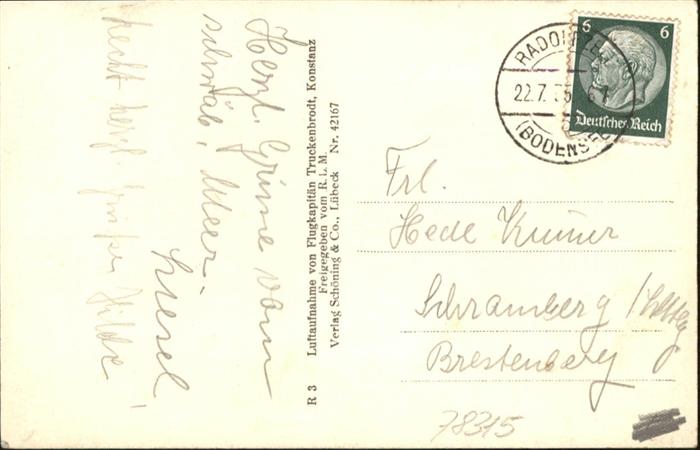 Herzl. Grüsse vom
schwäb. Meer.
Liesel
recht herzl. Grüße Hilde
R 3 Luftaufnahme von Flugkapitän Truckenbrodt, Konstanz
Freigegeben vom R. L. M.
Verlag Schöning & Co., Lübeck Nr. 42167
RADOLFZELL
22.7.35
(BODENSEE)
6 6
Deutsches Reich
Frl.
Hede
Schramberg
78315